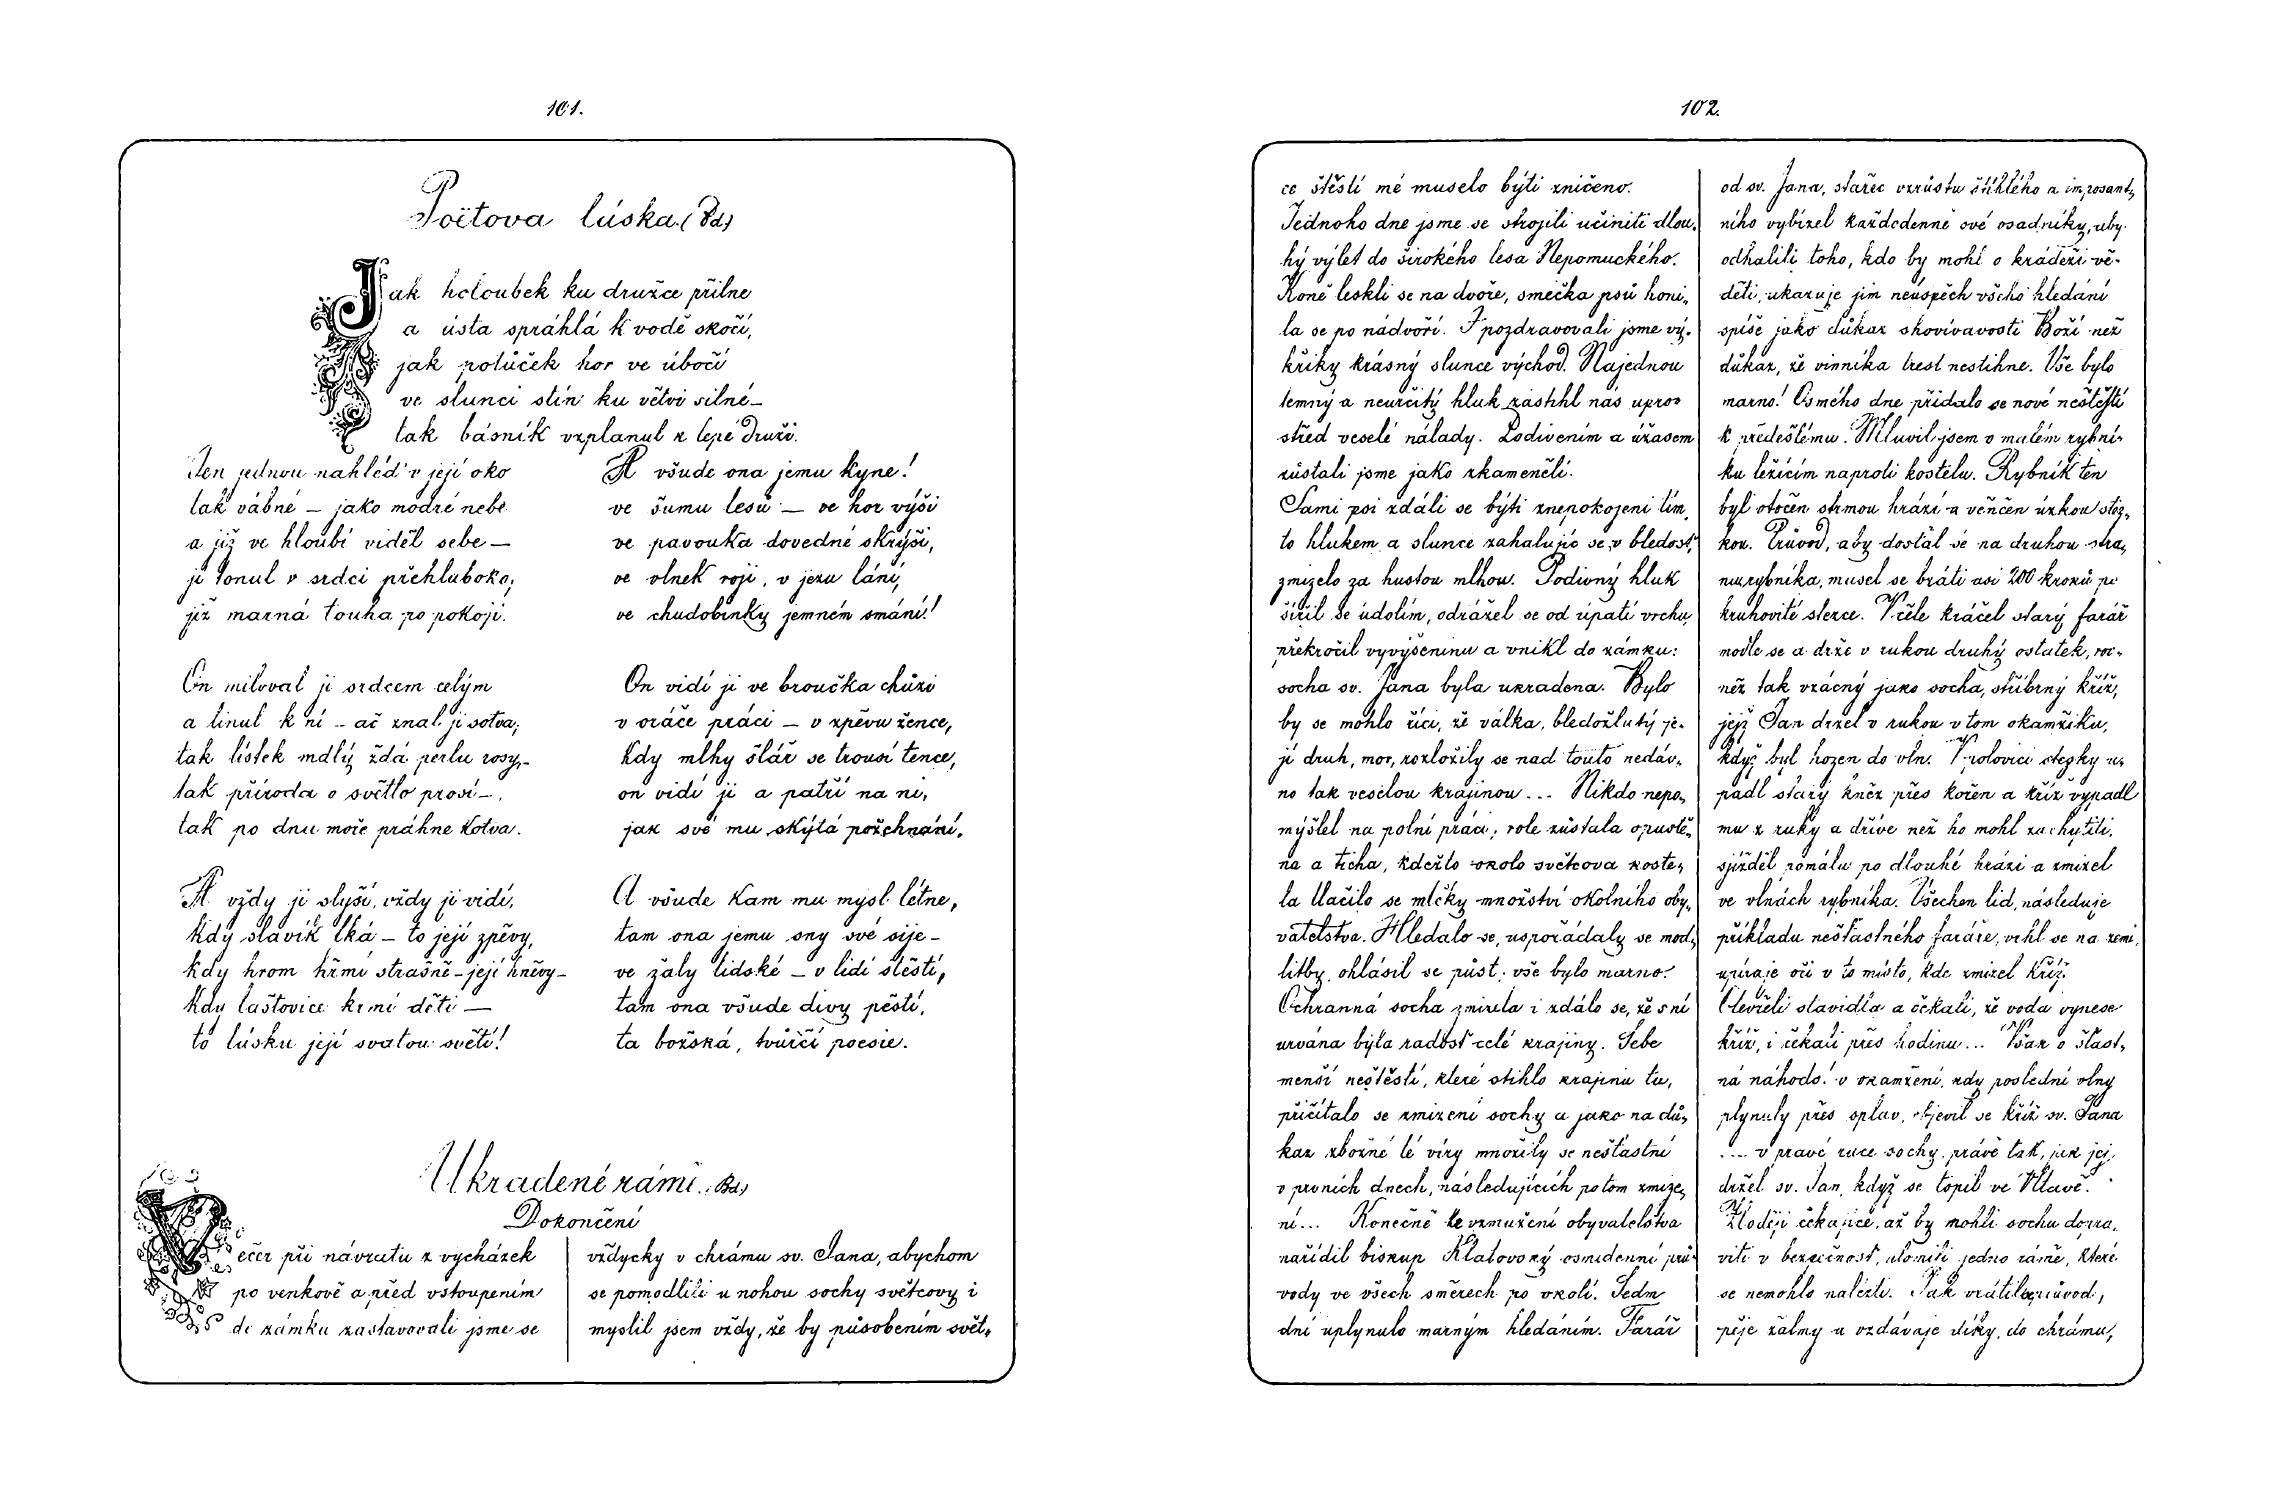 101.
Poëtova lúska. (Bd)
Jak holoubek ku družce přilne
a ústa spráhlá k vodě skočí,
jak potůček hor ve úbočí
ve slunci stín ku větvi silné —
tak básník vzplanul k lepé druži.
Jen jednou nahléd' v její oko
tak vábné — jako modré nebe
a již ve hloubi viděl sebe —
ji tonul v srdci přehluboko;
již marná touha po pokoji.
On miloval ji srdcem celým
a linul k ní — ač znal ji sotva;
tak lístek mdlý ždá perlu rosy, —
tak příroda o světlo prosí —,
tak po dnu moře práhne kotva.
A vždy ji slyší, vždy ji vidí,
kdy slavík lká — to její zpěvy,
kdy hrom hřmí strašně — její hněvy —
kdy laštovice krmí děti —
to lúsku její svatou světí!
A všude ona jemu kyne!
ve šumu lesů — ve hor výši
ve pavouka dovedné skrýši,
ve vlnek roji, v jezu lání,
ve chudobinky jemném smání!
On vidí ji ve broučka chůzi
v oráče práci — v zpěvu žence,
kdy mlhy šlář se trousí tence,
on vidí ji a patří na ni,
jak své mu skýtá požehnání.
A všude kam mu mysl létne,
tam ona jemu sny své sije —
ve žaly lidské — v lidí štěstí,
tam ona všude divy pěstí,
ta božská, tvůrčí poesie.
Ukradené rámě. (Bd)
Dokončení
Večer při návratu z vycházek
po venkově a před vstoupením
do zámku zastavovali jsme se
vždycky v chrámu sv. Jana, abychom
se pomodlili u nohou sochy světcovy i
myslil jsem vždy, že by působením svět-
102.
ce štěstí mé muselo býti zničeno.
Jednoho dne jsme se strojili učiniti dlou-
hý výlet do širokého lesa Nepomuckého.
Koně leskli se na dvoře, smečka psů honi-
la se po nádvoří. I pozdravovali jsme vý-
křiky krásný slunce východ. Najednou
temný a neurčitý hluk zastihl nás upro-
střed veselé nálady. Podivením a úžasem
zůstali jsme jako zkamenělí.
Sami psi zdáli se býti znepokojeni tím-
to hlukem a slunce zahalujíc se v bledost,
zmizelo za hustou mlhou. Podivný hluk
šířil se údolím, odrážel se od úpatí vrchu,
překročil vyvýšeninu a vnikl do zámku:
socha sv. Jana byla ukradena. Bylo
by se mohlo říci, že válka, bledožlutý je-
jí druh, mor, rozložily se nad touto nedáv-
no tak veselou krajinou... Nikdo nepo-
mýšlel na polní práci; role zůstala opuště-
na a ticha, kdežto okolo světcova koste-
la tlačilo se mlčky množství okolního oby-
vatelstva. Hledalo se, uspořádaly se mod-
litby, ohlásil se půst; vše bylo marno.
Ochranná socha zmizela i zdálo se, že s ní
urvána byla radost celé krajiny. Sebe
menší neštěstí, které stihlo krajinu tu,
přičítalo se zmizení sochy a jako na dů-
kaz zbožné té víry množily se nešťastní
v prvních dnech, následujících potom zmize-
ní... Konečně ke vzmužení obyvatelstva
nařídil biskup Klatovský osmidenní prů-
vody ve všech směrech po okolí. Sedm
dní uplynulo marným hledáním. Farář
od sv. Jana, stařec vzrůstu štíhlého a imposant-
ního vybízel každodenně své osadníky, aby
odhalili toho, kdo by mohl o krádeži vě-
děti, ukazuje jim neúspěch všeho hledání
spíše jako důkaz shovívavosti Boží než
důkaz, že vinníka trest nestihne. Vše bylo
marno! Osmého dne přidalo se nové neštěstí
k předešlému. Mluvil jsem o malém rybní-
ku ležícím naproti kostelu. Rybník ten
byl otočen strmou hrází a věnčen úzkou stez-
kou. Průvod, aby dostal se na druhou stra-
nu rybníka, musel se bráti asi 200 kroků po
kruhovité stezce. V čele kráčel starý farář
modle se a drže v rukou druhý ostatek, rov-
něž tak vzácný jako socha, stříbrný kříž,
jejž Jan držel v rukou v tom okamžiku,
když byl hozen do vln. V polovici stezky u-
padl starý kněz přes kořen a kříž vypadl
mu z ruky a dříve než ho mohl zachytiti,
sjížděl pomálu po dlouhé hrázi a zmizel
ve vlnách rybníka. Všechen lid, následuje
příkladu nešťastného faráře, vrhl se na zemi,
upíraje oči v to místo, kde zmizel kříž.
Otevřeli stavidla a čekali, že voda vynese
kříž, i čekali přes hodinu... Však ó šťast-
ná náhodo! v okamžení, kdy poslední vlny
plynuly přes splav, objevil se kříž sv. Jana
... v pravé ruce sochy, právě tak, jak jej
držel sv. Jan, když se topil ve Vltavě.
Zloději čekajíce, až by mohli sochu dopra-
viti v bezpečnost, ulomili jedno rámě, které
se nemohlo nalézti. Tak vrátil se průvod,
pěje žalmy a vzdávaje díky, do chrámu,